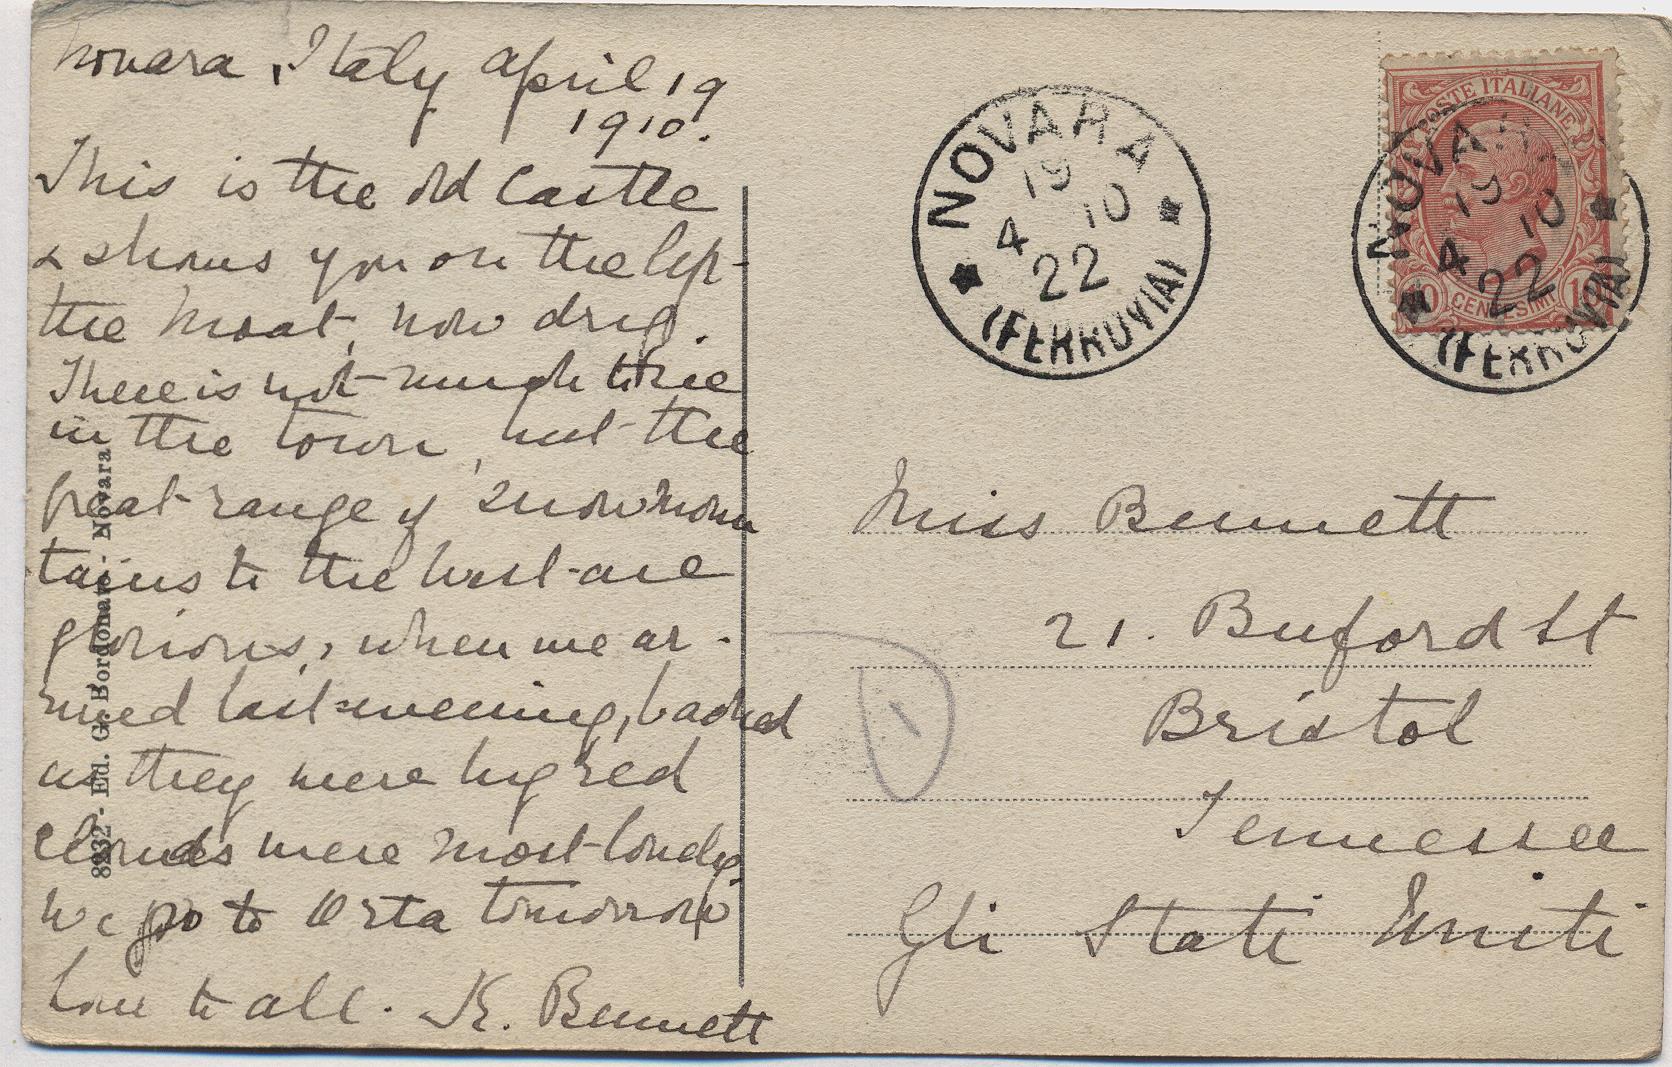 Novara, Italy April 19
1910.
This is the old Castle
& shows you on the left
the moat, now dry.
There is not much to see
in the town, but the
great range of snow moun
tains to the West are
glorious, when we ar-
rived last evening, backed
as they were by red
clouds were most lovely.
We go to Orta tomorrow
Love to all. K. Bennett
8232 - Ed. G. Bordonaro - Novara
NOVARA
19
4 10
22
(FERROVIA)
POSTE ITALIANE
NOVARA
19
4 10
22
10 CENTESIMI 10
(FERROVIA)
Miss Bennett
21. Buford St
Bristol
Tennessee
Gli Stati Uniti
1